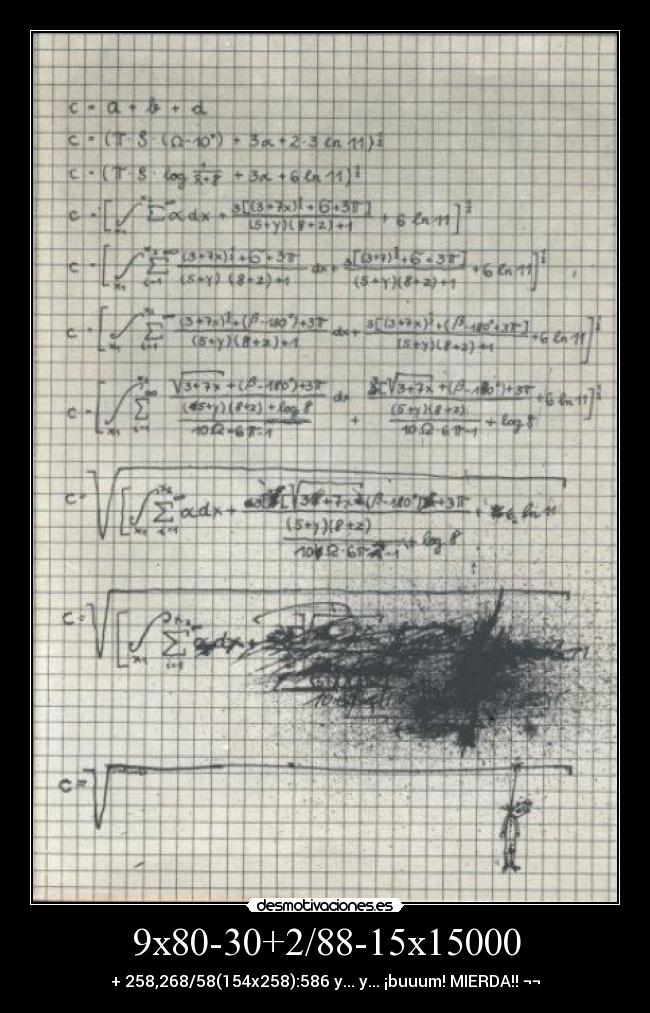 c = a + b + d
c = (π·S·(Ω-10°) + 3α + 2·3 ln 11)^½
c = (π·S·log + 3α + 6 ln 11)^½
c = [∫ Σ α dx + 3[(3+7x)^½ + 6 + 3π] / (5+y)(8+z)+1 + 6 ln 11]^½
c = [∫ Σ (3+7x)^½ + 6 + 3π / (5+y)(8+z)+1 dx + 3[(3+7)^½ + 6 + 3π] / (5+y)(8+z)+1 + 6 ln 11]^½
c = [∫ Σ (3+7x)^½ + (β-180°)+3π / (5+y)(8+z)+1 dx + 3[(3+7x)^½ + (β-180°+3π] / (5+y)(8+z)+1 + 6 ln 11]^½
c = [∫ Σ √3+7x + (β-180°)+3π / (5+y)(8+z) + log 8 / 10Ω·6π-1 dx + 3[√3+7x + (β-180°)+3π / (5+y)(8+z) / 10Ω·6π-1 + log 8 + 6 ln 11]^½
c = √[∫ Σ α dx + √3+7x (β-180°)+3π / (5+y)(8+z) / 10Ω·6π-1 + log 8 + 6 ln 11
c = √[∫ Σ α dx +
c = √
desmotivaciones.es
9x80-30+2/88-15x15000
+ 258,268/58(154x258):586 y... y... ¡buuum! MIERDA!! ¬¬